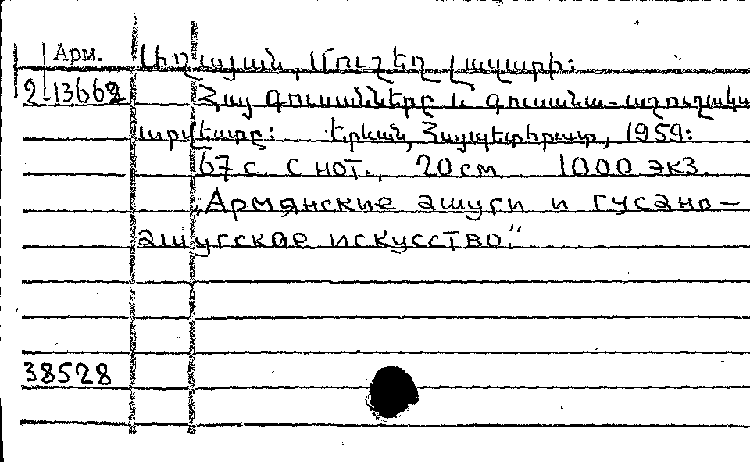 Арм.
Աղայան, Մուշեղ Լազարի:
2-13662 Հայ գուսանները և գուսանա-աշուղական
արվեստը: Երևան, Հայպետհրատ, 1959:
67 с. с нот., 20 см 1000 экз.
„Армянские ашуги и гусано-
ашугское искусство."
38528